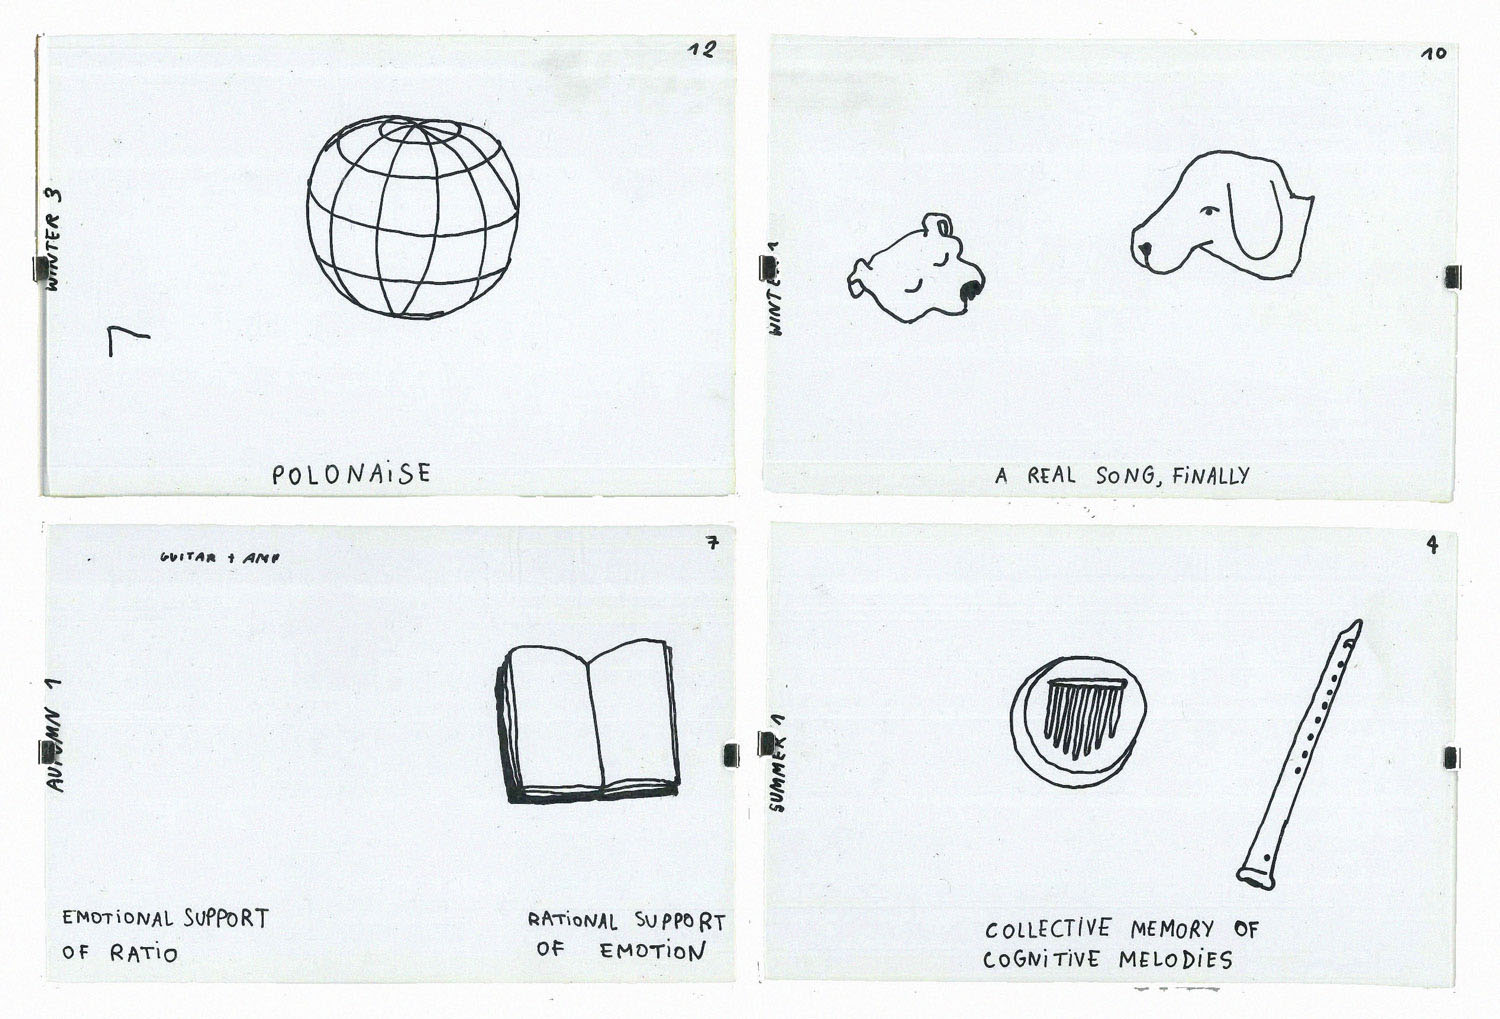 12
WINTER 3
POLONAiSE
10
WINTER 1
A REAL SONG, FiNALLY
7
GUITAR + AMP
AUTUMN 1
EMOTiONAL SUPPORT
OF RATiO
RATiONAL SUPPORT
OF EMOTiON
4
SUMMER 1
COLLECTiVE MEMORY OF
COGNiTiVE MELODiES